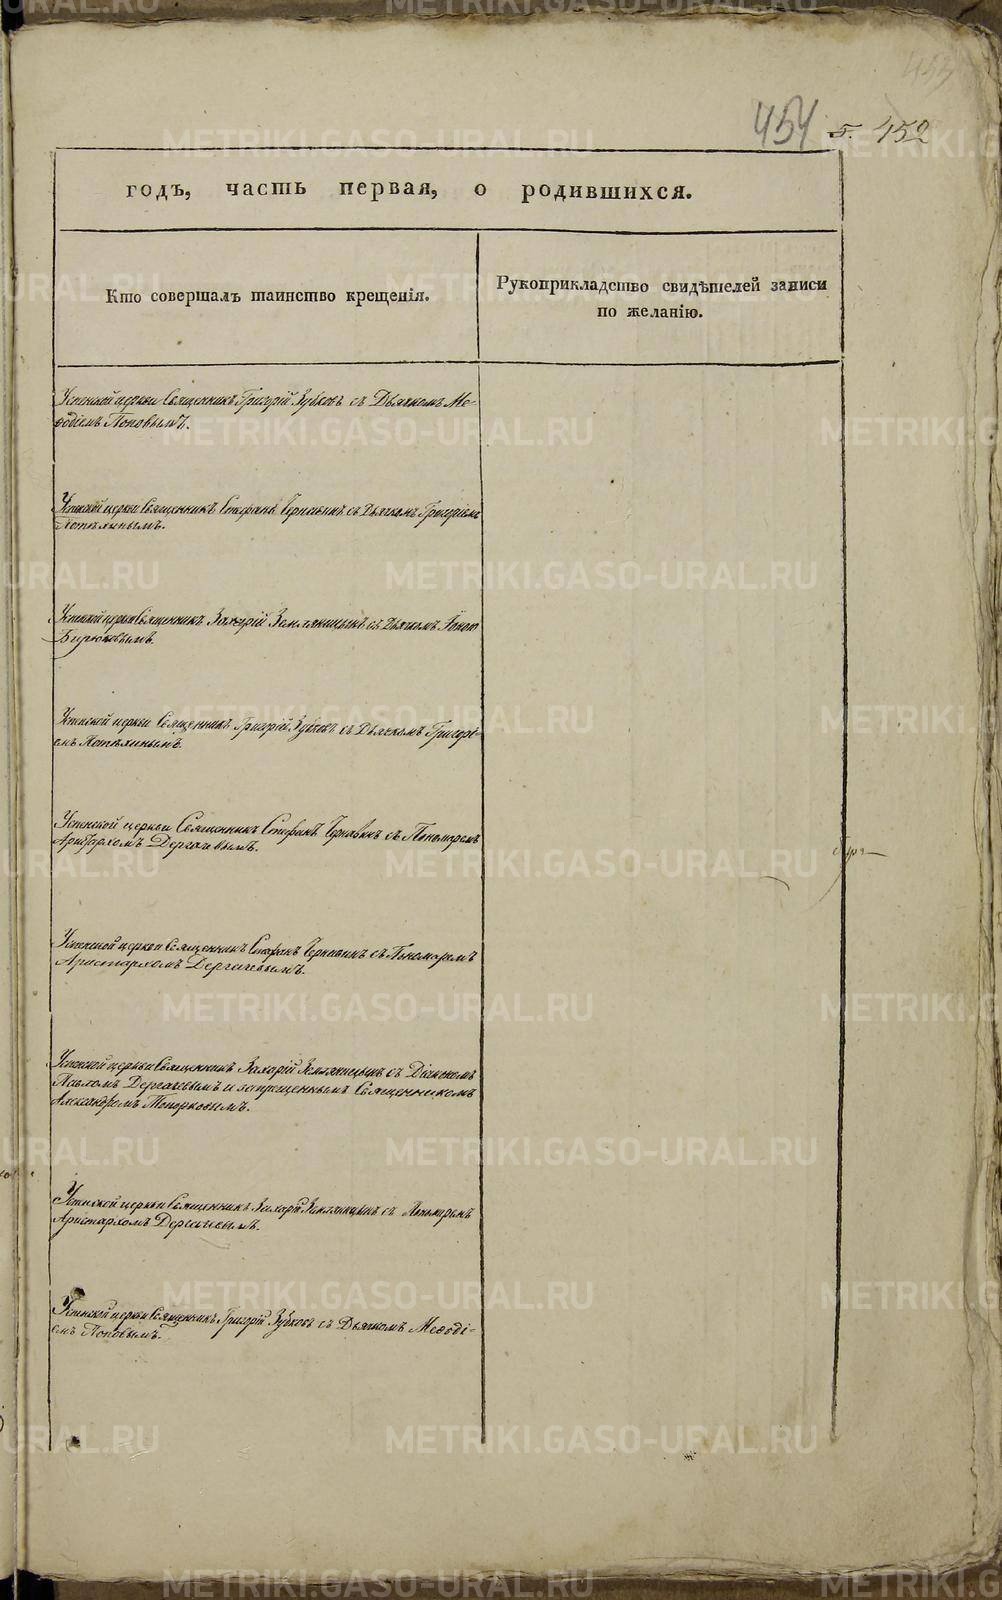 454 5. 452
453
годъ, часть первая, о родившихся.
Кто совершалъ таинство крещенія.
Рукоприкладство свидѣтелей записи
по желанію.
Успенской церкви Священникъ Григорій Зубковъ съ Дьячкомъ Ме-
ѳодіемъ Поповымъ.
Успенской церкви Священникъ Стефанъ Чернавинъ съ Дьячкомъ Григоріемъ
Потѣхинымъ.
Успенской церкви Священникъ Захарій Земляницынъ съ Дьячкомъ Іоною
Бирюковымъ.
Успенской церкви Священникъ Григорій Зубковъ съ Дьячкомъ Григорі-
емъ Потѣхинымъ.
Успенской церкви Священникъ Стефанъ Чернавинъ съ Пономаремъ
Аристархомъ Дергачевымъ.
Успенской церкви Священникъ Стефанъ Чернавинъ съ Пономаремъ
Аристархомъ Дергачевымъ.
Успенской церкви Священникъ Захарій Земляницынъ съ Діакономъ
Павломъ Дергачевымъ и запрещеннымъ Священникомъ
Александромъ Топорковымъ.
Успенской церкви Священникъ Захарій Земляницынъ съ Пономаремъ
Аристархомъ Дергачевымъ.
Успенской церкви Священникъ Григорій Зубковъ съ Дьячкомъ Меѳоді-
емъ Поповымъ.
METRIKI.GASO-URAL.RU